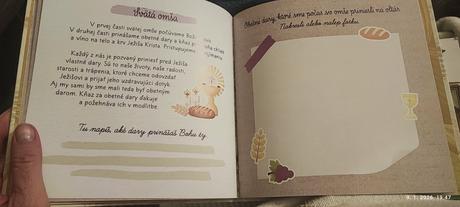 Svätá omša
V prvej časti svätej omše počúvame Bož
V druhej časti prinášame obetné dary a kňaz p
a víno na telo a krv Ježiša Krista. Pristupujeme
Každý z nás je pozvaný priniesť pred Ježiša
vlastné dary. Sú to naše životy, naše radosti,
starosti a trápenia, ktoré chceme odovzdať
Ježišovi a prijať jeho uzdravujúci dotyk.
Aj my sami by sme mali teda byť obetným
darom. Kňaz za obetné dary ďakuje
a požehnáva ich v modlitbe.
Tu napíš, aké dary prinášaš Bohu ty.
Obetné dary, ktoré sme počas sv. omše priniesli na oltár.
Nakresli alebo nalep fotku.
9. 1. 2026, 13:47